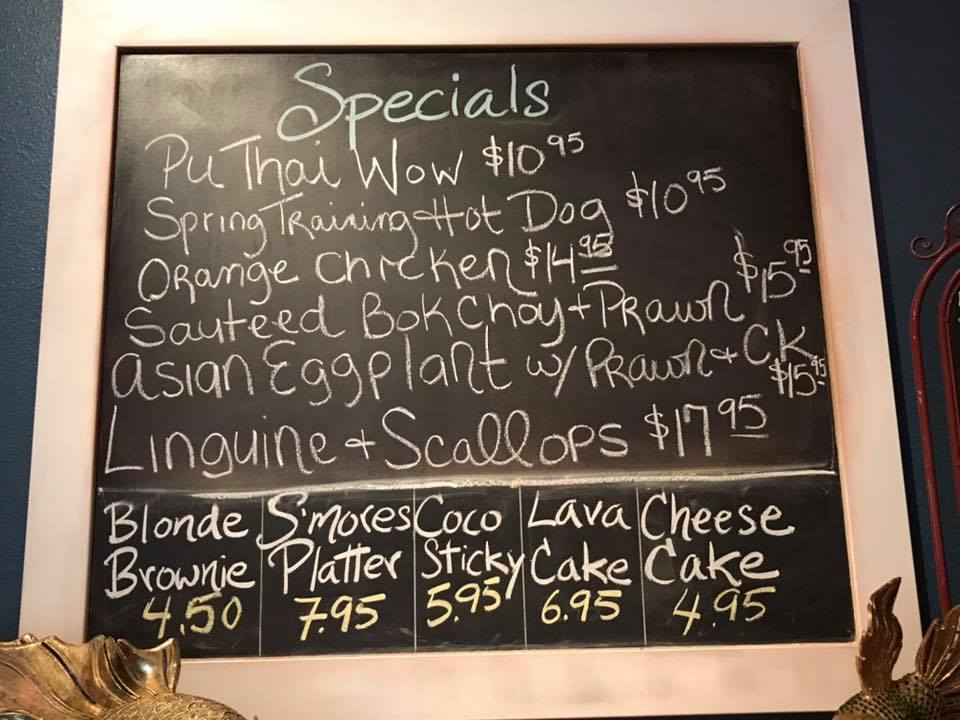 Specials
Pu Thai Wow $10 95
Spring Training Hot Dog $10 95
Orange Chicken $14 95
Sauteed Bok Choy + Prawn $15 95
Asian Eggplant w/ Prawn + CK $15 95
Linguine + Scallops $17 95
Blonde Brownie 4.50
S'mores Platter 7.95
Coco Sticky 5.95
Lava Cake 6.95
Cheese Cake 4.95